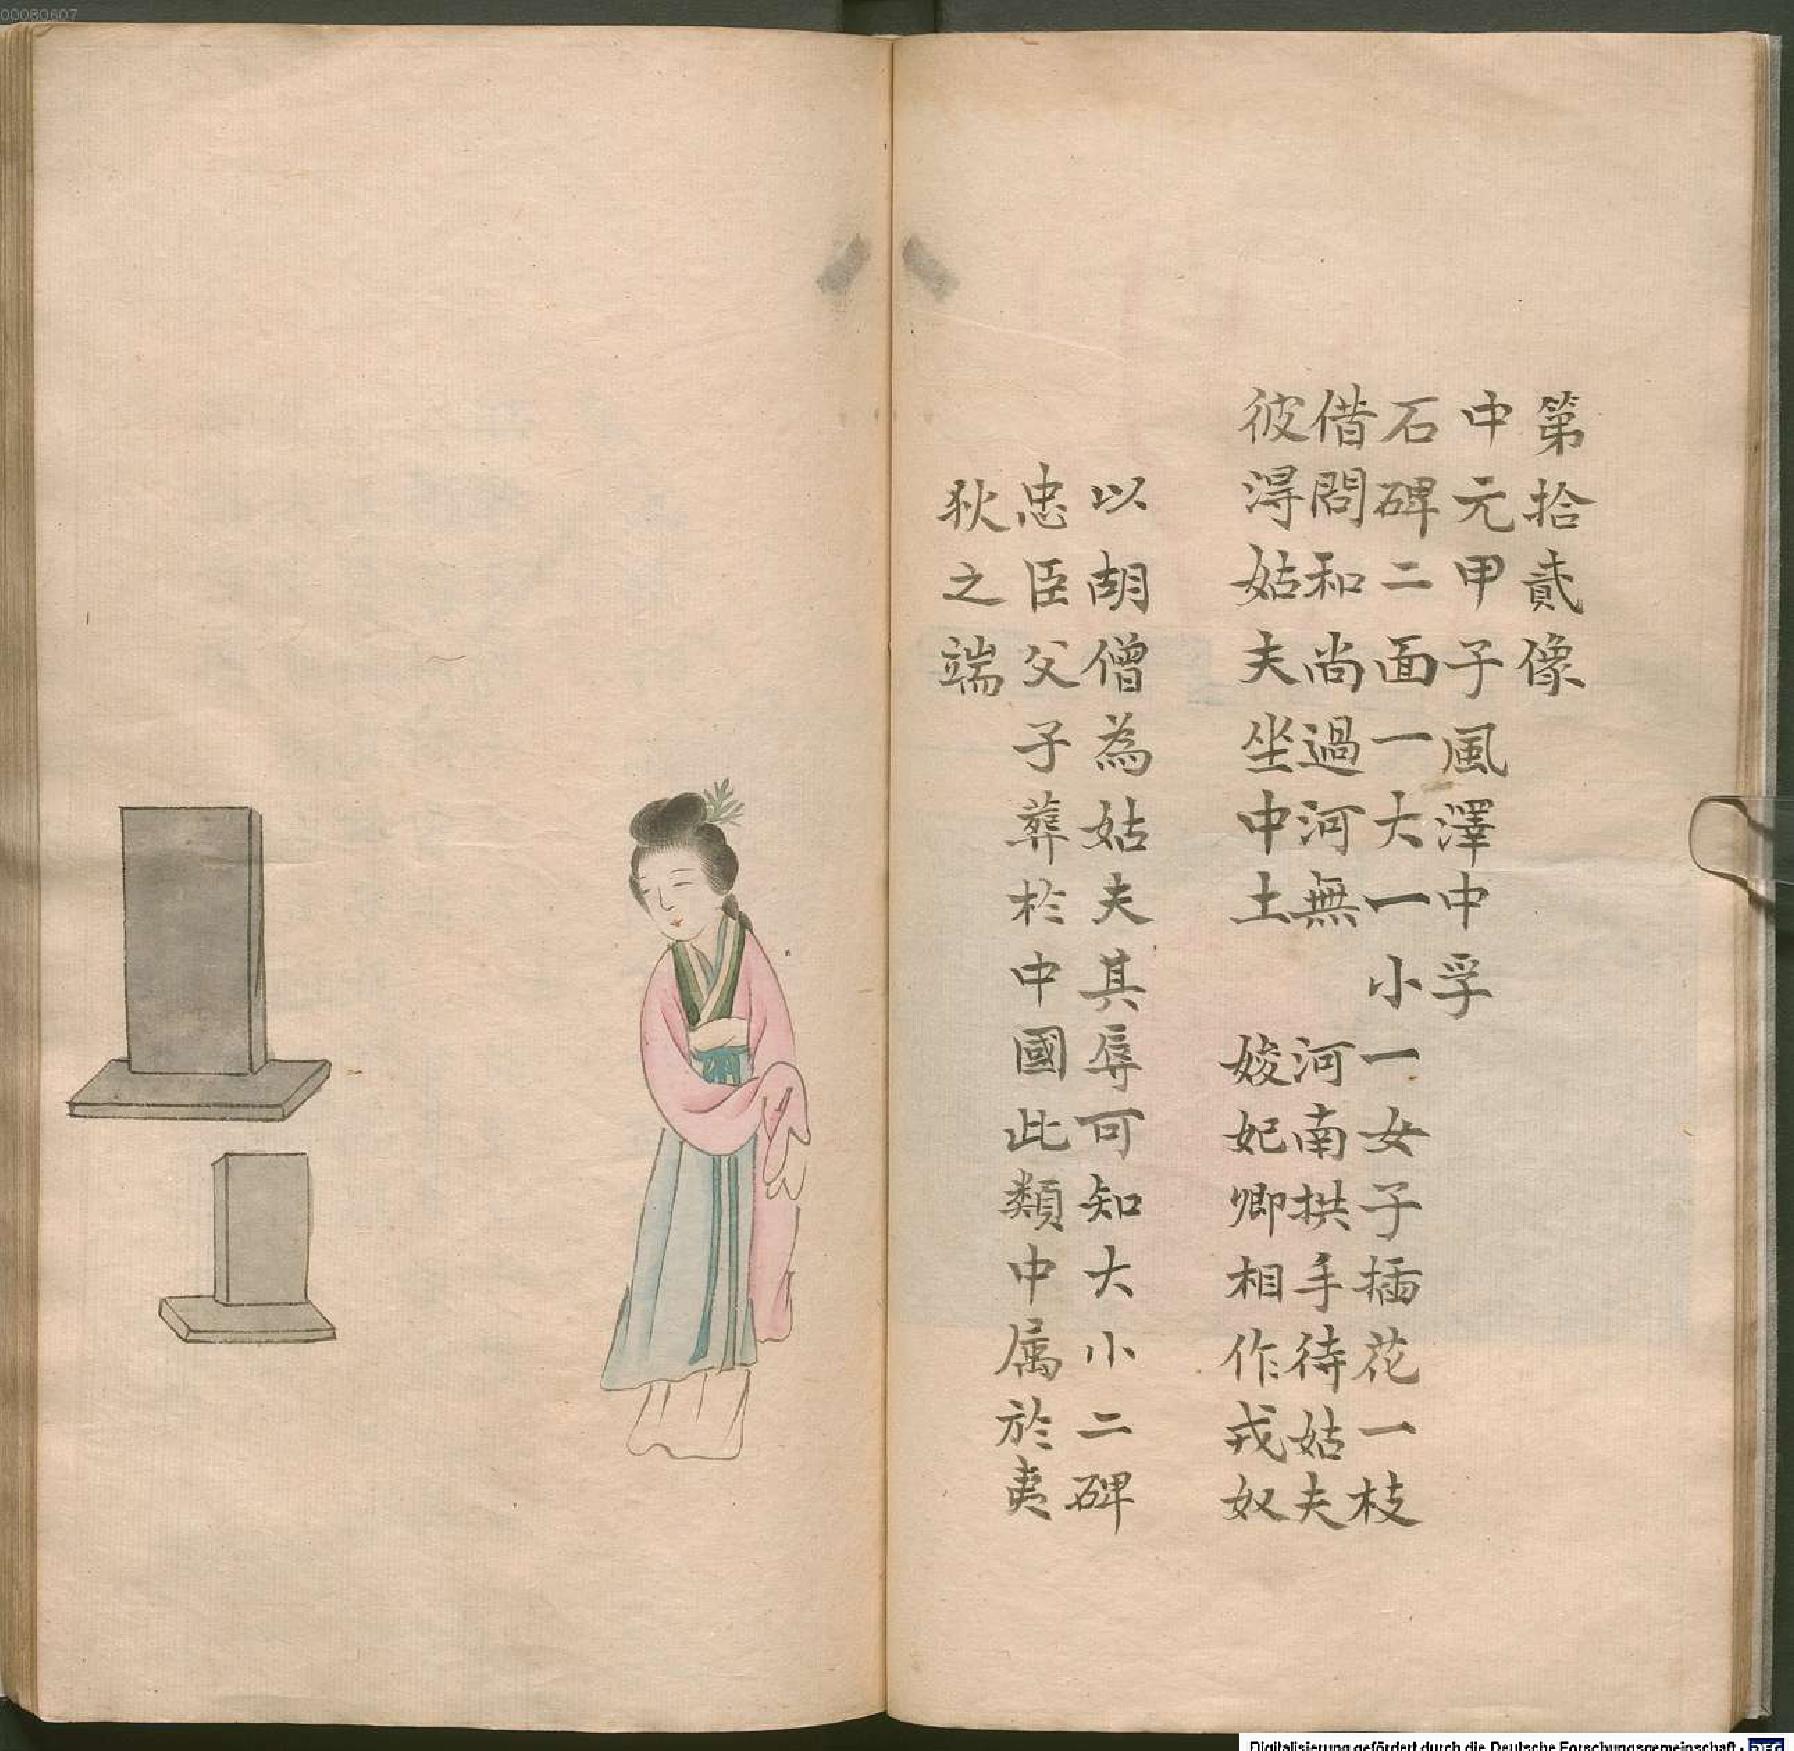 第拾貳像
中元甲子風澤中孚
石碑二面一大一小 一女子插花一枝
借問和尚過河無 河南拱手待姑夫
彼淂姑夫坐中土 婈妃卿相作戎奴
以胡僧為姑夫其辱可知大小二碑
忠臣父子葬於中國此類中属於夷
狄之端
00080607
Digitalisierung gefördert durch die Deutsche Forschungsgemeinschaft - DFG